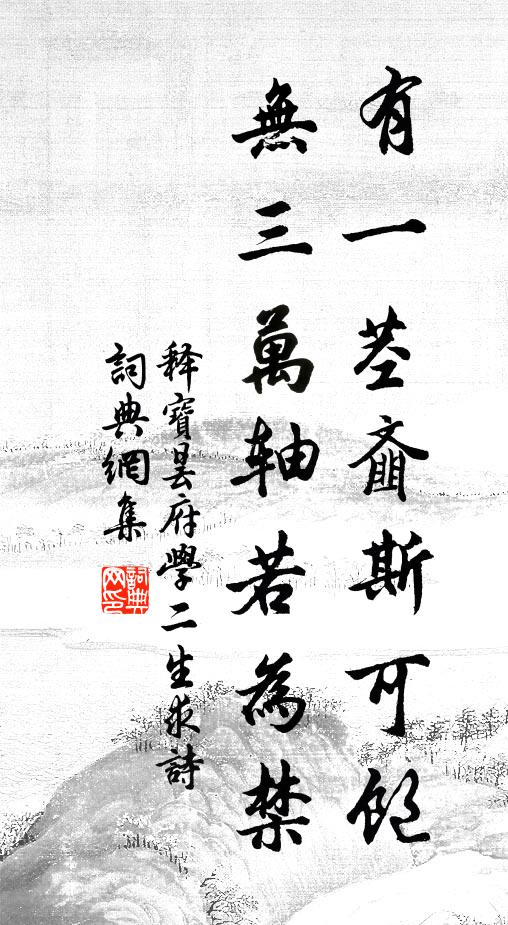 有一茎齑斯可飽
無三萬軸若為禁
释寶曇府學二生求詩
詞典網集
詞典网印